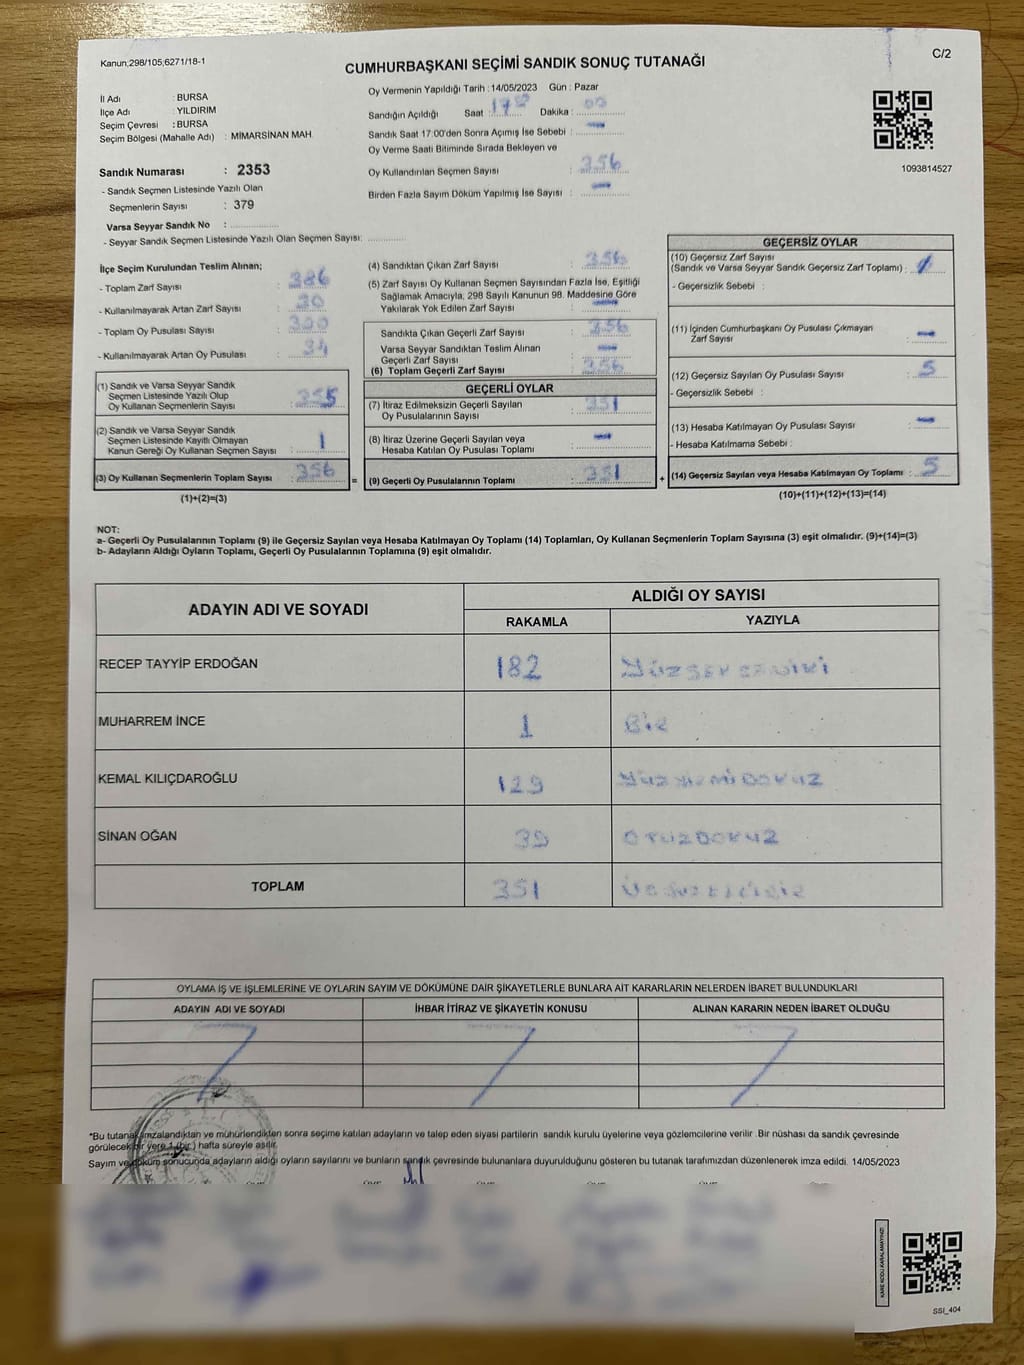 Kanun;298/105;6271/18-1
C/2
CUMHURBAŞKANI SEÇİMİ SANDIK SONUÇ TUTANAĞI
İl Adı : BURSA
İlçe Adı : YILDIRIM
Seçim Çevresi : BURSA
Seçim Bölgesi (Mahalle Adı) : MİMARSİNAN MAH.
Sandık Numarası : 2353
- Sandık Seçmen Listesinde Yazılı Olan
Seçmenlerin Sayısı : 379
Varsa Seyyar Sandık No :
- Seyyar Sandık Seçmen Listesinde Yazılı Olan Seçmen Sayısı:
Oy Vermenin Yapıldığı Tarih : 14/05/2023 Gün : Pazar
Sandığın Açıldığı Saat : 17 00 Dakika : 00
Sandık Saat 17:00'den Sonra Açımış İse Sebebi : —
Oy Verme Saati Bitiminde Sırada Bekleyen ve
Oy Kullandırılan Seçmen Sayısı : 356
Birden Fazla Sayım Döküm Yapılmış İse Sayısı : —
1093814527
İlçe Seçim Kurulundan Teslim Alınan;
- Toplam Zarf Sayısı : 386
- Kullanılmayarak Artan Zarf Sayısı : 30
- Toplam Oy Pusulası Sayısı :
- Kullanılmayarak Artan Oy Pusulası : 34
(1) Sandık ve Varsa Seyyar Sandık
Seçmen Listesinde Yazılı Olup
Oy Kullanan Seçmenlerin Sayısı : 355
(2) Sandık ve Varsa Seyyar Sandık
Seçmen Listesinde Kayıtlı Olmayan
Kanun Gereği Oy Kullanan Seçmen Sayısı : 1
(3) Oy Kullanan Seçmenlerin Toplam Sayısı : 356
(1)+(2)=(3)
(4) Sandıktan Çıkan Zarf Sayısı : 356
(5) Zarf Sayısı Oy Kullanan Seçmen Sayısından Fazla İse, Eşitliği
Sağlamak Amacıyla, 298 Sayılı Kanunun 98. Maddesine Göre
Yakılarak Yok Edilen Zarf Sayısı : —
Sandıkta Çıkan Geçerli Zarf Sayısı : 356
Varsa Seyyar Sandıktan Teslim Alınan
Geçerli Zarf Sayısı : —
(6) Toplam Geçerli Zarf Sayısı : 356
GEÇERLİ OYLAR
(7) İtiraz Edilmeksizin Geçerli Sayılan
Oy Pusulalarının Sayısı : 351
(8) İtiraz Üzerine Geçerli Sayılan veya
Hesaba Katılan Oy Pusulası Toplamı : —
= (9) Geçerli Oy Pusulalarının Toplamı : 351
GEÇERSİZ OYLAR
(10) Geçersiz Zarf Sayısı
(Sandık ve Varsa Seyyar Sandık Geçersiz Zarf Toplamı) :
- Geçersizlik Sebebi :
(11) İçinden Cumhurbaşkanı Oy Pusulası Çıkmayan
Zarf Sayısı : —
(12) Geçersiz Sayılan Oy Pusulası Sayısı : 5
- Geçersizlik Sebebi :
(13) Hesaba Katılmayan Oy Pusulası Sayısı : —
- Hesaba Katılmama Sebebi :
+ (14) Geçersiz Sayılan veya Hesaba Katılmayan Oy Toplamı : 5
(10)+(11)+(12)+(13)=(14)
NOT:
a- Geçerli Oy Pusulalarının Toplamı (9) ile Geçersiz Sayılan veya Hesaba Katılmayan Oy Toplamı (14) Toplamları, Oy Kullanan Seçmenlerin Toplam Sayısına (3) eşit olmalıdır. (9)+(14)=(3)
b- Adayların Aldığı Oyların Toplamı, Geçerli Oy Pusulalarının Toplamına (9) eşit olmalıdır.
ADAYIN ADI VE SOYADI ALDIĞI OY SAYISI
RAKAMLA YAZIYLA
RECEP TAYYİP ERDOĞAN 182 YÜZSEKSENİKİ
MUHARREM İNCE 1 BİR
KEMAL KILIÇDAROĞLU 129 YÜZYİRMİDOKUZ
SİNAN OĞAN 39 OTUZDOKUZ
TOPLAM 351 ÜÇYÜZELLİBİR
OYLAMA İŞ VE İŞLEMLERİNE VE OYLARIN SAYIM VE DÖKÜMÜNE DAİR ŞİKAYETLERLE BUNLARA AİT KARARLARIN NELERDEN İBARET BULUNDUKLARI
ADAYIN ADI VE SOYADI İHBAR İTİRAZ VE ŞİKAYETİN KONUSU ALINAN KARARIN NEDEN İBARET OLDUĞU
*Bu tutanak imzalandıktan ve mühürlendikten sonra seçime katılan adayların ve talep eden siyasi partilerin sandık kurulu üyelerine veya gözlemcilerine verilir .Bir nüshası da sandık çevresinde
görülecek bir yere 1 (bir ) hafta süreyle asılır.
Sayım ve döküm sonucunda adayların aldığı oyların sayılarını ve bunların sandık çevresinde bulunanlara duyurulduğunu gösteren bu tutanak tarafımızdan düzenlenerek imza edildi. 14/05/2023
KARE KODU KARALAMAYINIZ!
SSI_404